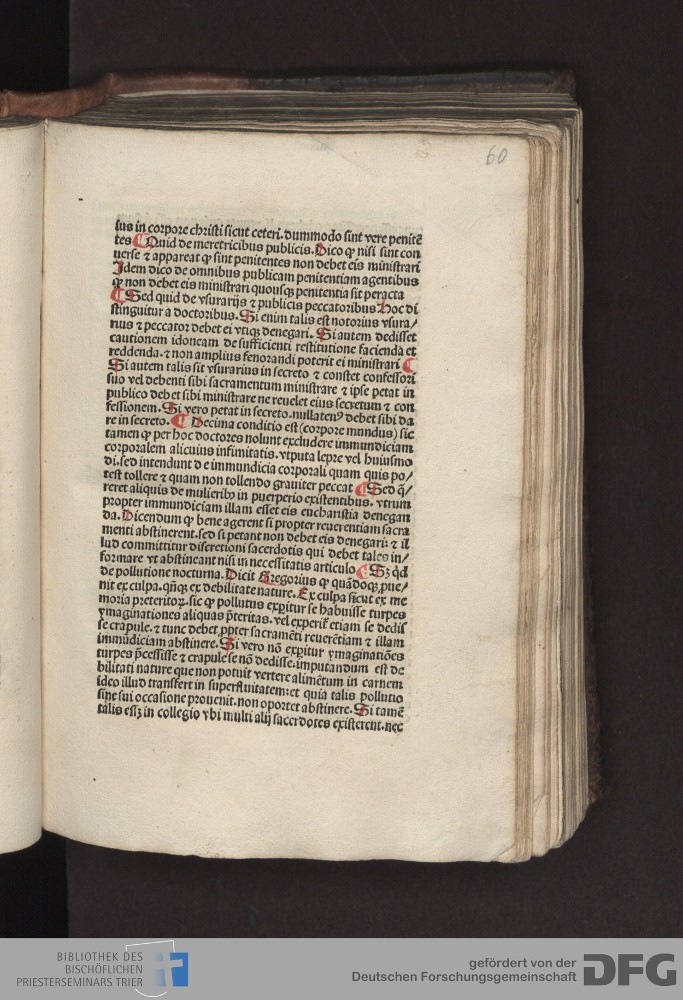 60
ius in corpore christi sicut ceteri. dummodo sint vere penitē
tes ¶ Quid de meretricibus publicis. Dico ꝙ nisi sint con
uerse ⁊ appareat ꝙ sint penitentes non debet eis ministrari
Idem dico de omnibus publicam penitentiam agentibus
ꝙ non debet eis ministrari quousꝗ penitentia sit peracta
¶ Sed quid de vsurarijs ⁊ publicis peccatoribus Hoc di
stinguitur a doctoribus. Si enim talis est notorius vsura/
rius ⁊ peccator debet ei vtiqꝫ denegari. Si autem dedisset
cautionem idoneam de sufficienti restitutione facienda et
reddenda. ⁊ non amplius fenorandi poterit ei ministrari ¶
Si autem talis sit vsurarius in secreto ⁊ constet confessori
suo vel debenti sibi sacramentum ministrare ⁊ ipse petat in
publico debet sibi ministrare ne reuelet eius secretum ⁊ con
fessionem. Si vero petat in secreto. nullatenꝰ debet sibi da
re in secreto. ¶ Decima conditio est (corpore mundus) sic
tamen ꝙ per hoc doctores nolunt excludere immundiciam
corporalem alicuius infimitatis. vtputa lepre vel huiusmo
di. sed intendunt de immundicia corporali quam quis po/
test tollere ⁊ quam non tollendo grauiter peccat ¶ Sed q̄/
reret aliquis de mulieribꝰ in puerperio existentibus. vtrum
propter immundiciam illam esset eis eucharistia denegan
da. Dicendum ꝙ bene agerent si propter reuerentiam sacra
menti abstinerent. sed si petant non debet eis denegari: ⁊ il
lud committitur discretioni sacerdotis qui debet tales in/
formare vt abstineant nisi in necessitatis articulo ¶ Sꝫ qd
de pollutione nocturna. Dicit Gregorius ꝙ quādoqꝫ pue/
nit ex culpa. qn̄qꝫ ex debilitate nature. Ex culpa sicut ex me
moria preteritoꝝ. sic ꝙ pollutus exꝑitur se habuisse turpes
ymaginationes aliquas p̄teritas. vel experit̄ etiam se dedis
se crapule. ⁊ tunc debet ꝓpter sacramēti reuerētiam ⁊ illam
immūdiciam abstinere. Si vero nō exꝑitur ymaginatiões
turpes p̄cessisse ⁊ crapule se nō dedisse. imputandum est de
bilitati nature que non potuit vertere alimētum in carnem
ideo illud transfert in superfluitatem: et quia talis pollutio
sine sui occasione prouenit. non oportet abstinere. Si tamē
talis essꝫ in collegio vbi multi alij sacerdotes existerent. nec
BIBLIOTHEK DES
BISCHÖFLICHEN
PRIESTERSEMINARS TRIER
gefördert von der
Deutschen Forschungsgemeinschaft
DFG